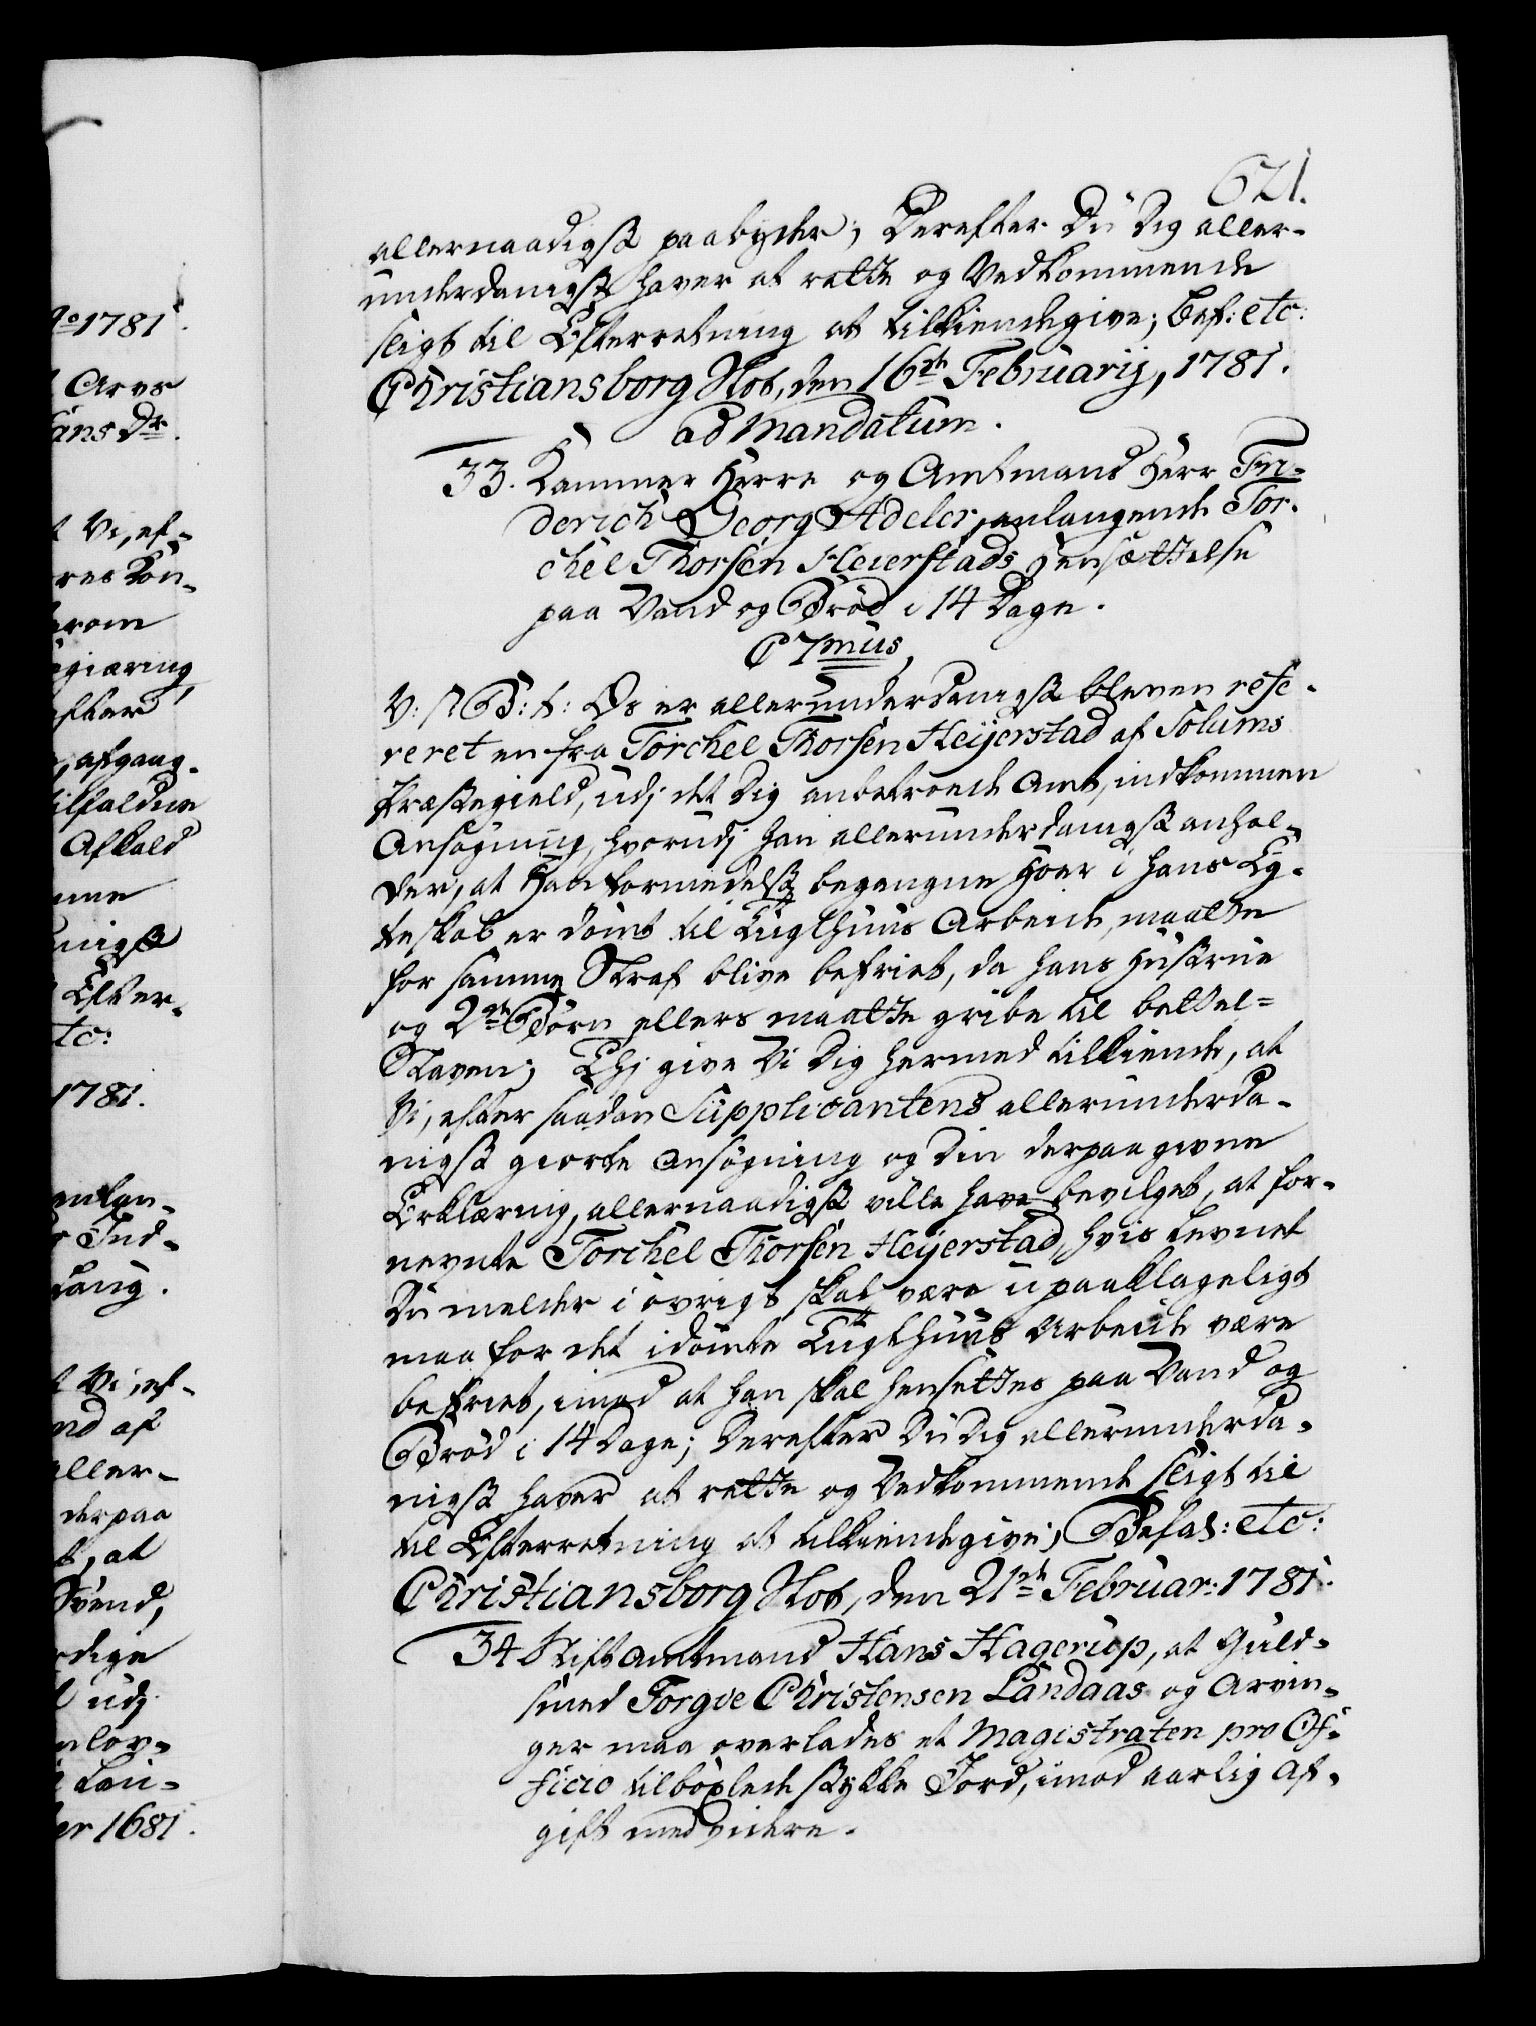 621.
allernaadigst paabyder; Derefter Du Dig aller-
underdanigst haver at rette og Vedkommende
sligt til Efterretning at tilkiendegive; Bef: etc:
Christiansborg Slot, den 16de Februarij, 1781.
ad Mandatum.
33. Kammer Herre og Amtmand Herr Fri-
derich Georg Adeler, anlangende Tor-
chel Thorsen Heierstads Hensættelse
paa Vand og Brød i 14 Dage.
C 7mus,
V: S: B: t: Os er allerunderdanigst bleven refe-
reret en fra Torchel Thorsen Heijerstad af Solums
Præstegield, udj det Dig anbetroede Amt, indkommen
Ansøgning, hvorudj han allerunderdanigst anhol-
der, at Han formedelst begangne Hoer i hans Eg-
teskab er dømt til Tugthuus Arbeide, maatte
for samme Straf blive befriet, da hans Hustrue
og 2de Børn ellers maatte gribe til bettel-
Staven; Thj give Vi Dig hermed tilkiende, at
Vi, efter saadan Supplicantens allerunderda-
nigst giorte Ansøgning og Din derpaa givne
Erklæring, allernaadigst ville have bevilget, at for-
nevnte Torchel Thorsen Heijerstad, hvis Levnet
Du melder i øvrigt skal være upaaklageligt
maa for det idømte Tugthuus Arbeide være
befriet, imod at han skal hensettes paa Vand og
Brød i 14 Dage; Derefter Du Dig allerunderda-
nigst haver at rette og Vedkommende sligt til
til Efterretning at tilkiendegive; Befal: etc:
Christiansborg Slot, den 21de Februar: 1781.
34 Stiftamtmand Hans Hagerup, at Guld-
smed Torgve Christensen Landaas og Arvin-
ger maa overlades et Magistraten pro Of-
ficio tilbøxlede stykke Jord, imod aarlig Af-
gift med videre.